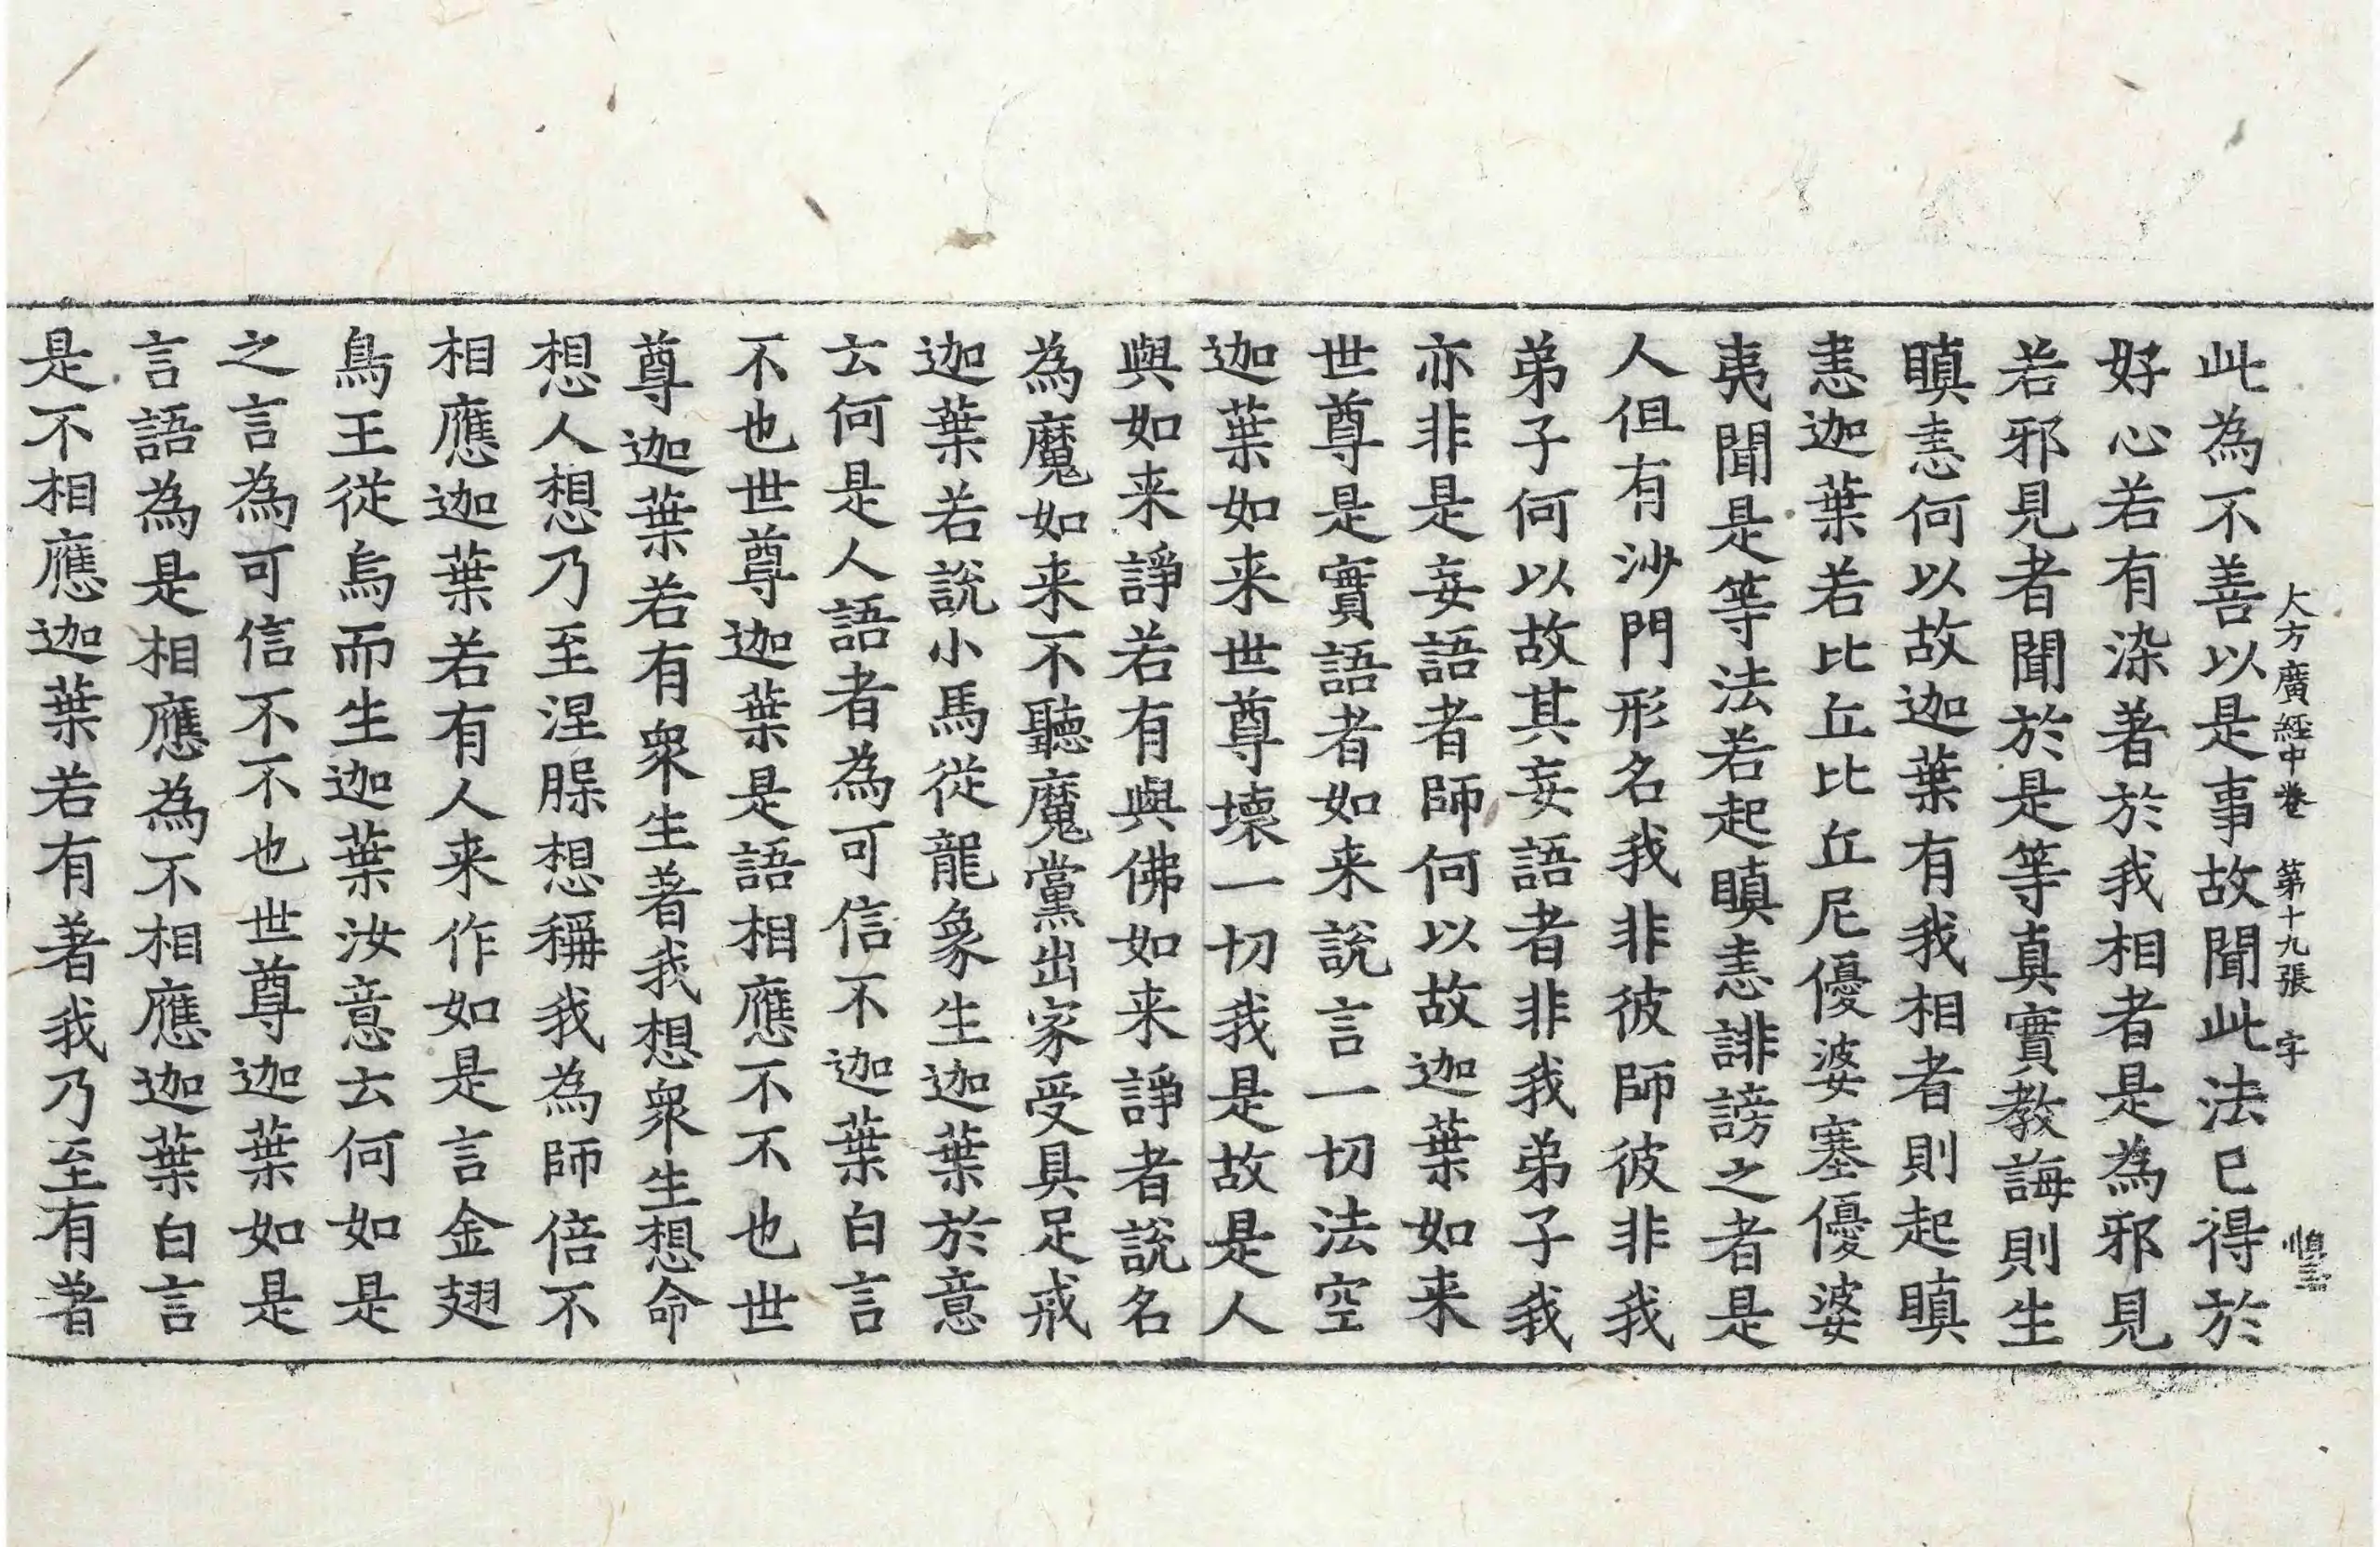 大方廣經中卷 第十九張 字
此為不善以是事故聞此法已得於
好心若有染著於我相者是為邪見
若邪見者聞於是等真實教誨則生
瞋恚何以故迦葉有我相者則起瞋
恚迦葉若比丘比丘尼優婆塞優婆
夷聞是等法若起瞋恚誹謗之者是
人但有沙門形名我非彼師彼非我
弟子何以故其妄語者非我弟子我
亦非是妄語者師何以故迦葉如来
世尊是實語者如来說言一切法空
迦葉如来世尊壞一切我是故是人
與如来諍若有與佛如来諍者說名
為魔如来不聽魔黨出家受具足戒
迦葉若說小馬從龍象生迦葉於意
云何是人語者為可信不迦葉白言
不也世尊迦葉是語相應不不也世
尊迦葉若有眾生著我想眾生想命
想人想乃至涅槃想稱我為師倍不
相應迦葉若有人来作如是言金翅
鳥王從烏而生迦葉汝意云何如是
之言為可信不不也世尊迦葉如是
言語為是相應為不相應迦葉白言
是不相應迦葉若有著我乃至有著